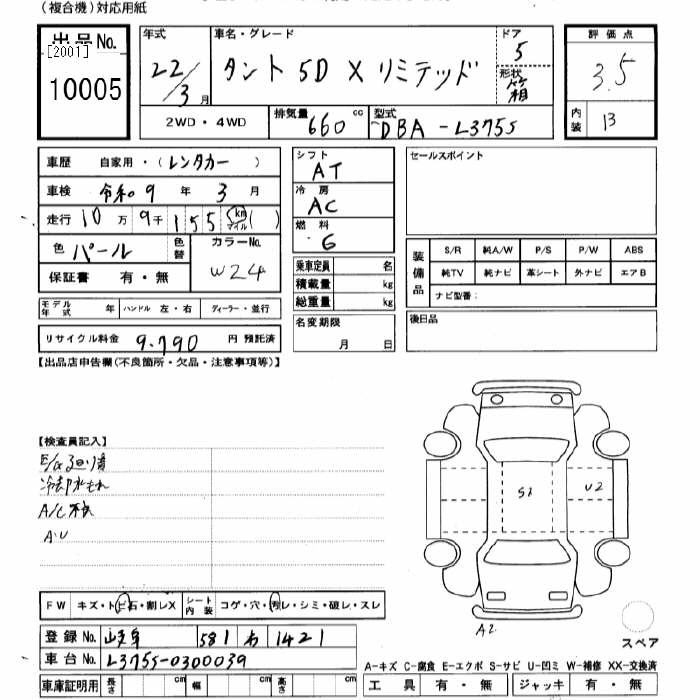 (複合機)対応用紙
出品No.
[2001]
10005
年式
22/3月
車名・グレード
タント 5D X リミテッド
ドア
5
形状
箱
評価点
3.5
内装
B
2WD・4WD
排気量
660 cc
型式
DBA-L375S
車歴 自家用・(レンタカー)
車検 令和9年3月
走行 10万9千155 km マイル ( )
色 パール 色替
カラーNo.
W24
保証書 有・無
モデル年式 年 ハンドル 左・右 ディーラー・並行
リサイクル料金 9.790 円 預託済
シフト
AT
冷房
AC
燃料
G
乗車定員 名
積載量 kg
総重量 kg
名変期限
月 日
セールスポイント
装備品
S/R 純A/W P/S P/W ABS
純TV 純ナビ 革シート 外ナビ エアB
ナビ型番:
後日品
【出品店申告欄(不良箇所・欠品・注意事項等)】
【検査員記入】
冷却水もれ
A/C不良
AU
S1
U2
A2
FW キズ・トビ石・割レX シート内装 コゲ・穴・汚レ・シミ・破レ・スレ
登録No. 岐阜 581 わ 1421
車台No. L375S-0300039
車庫証明用 長さ cm 幅 cm 高さ cm
スペア
A-キズ C-腐食 E-エクボ S-サビ U-凹ミ W-補修 XX-交換済
工具 有・無 ジャッキ 有・無